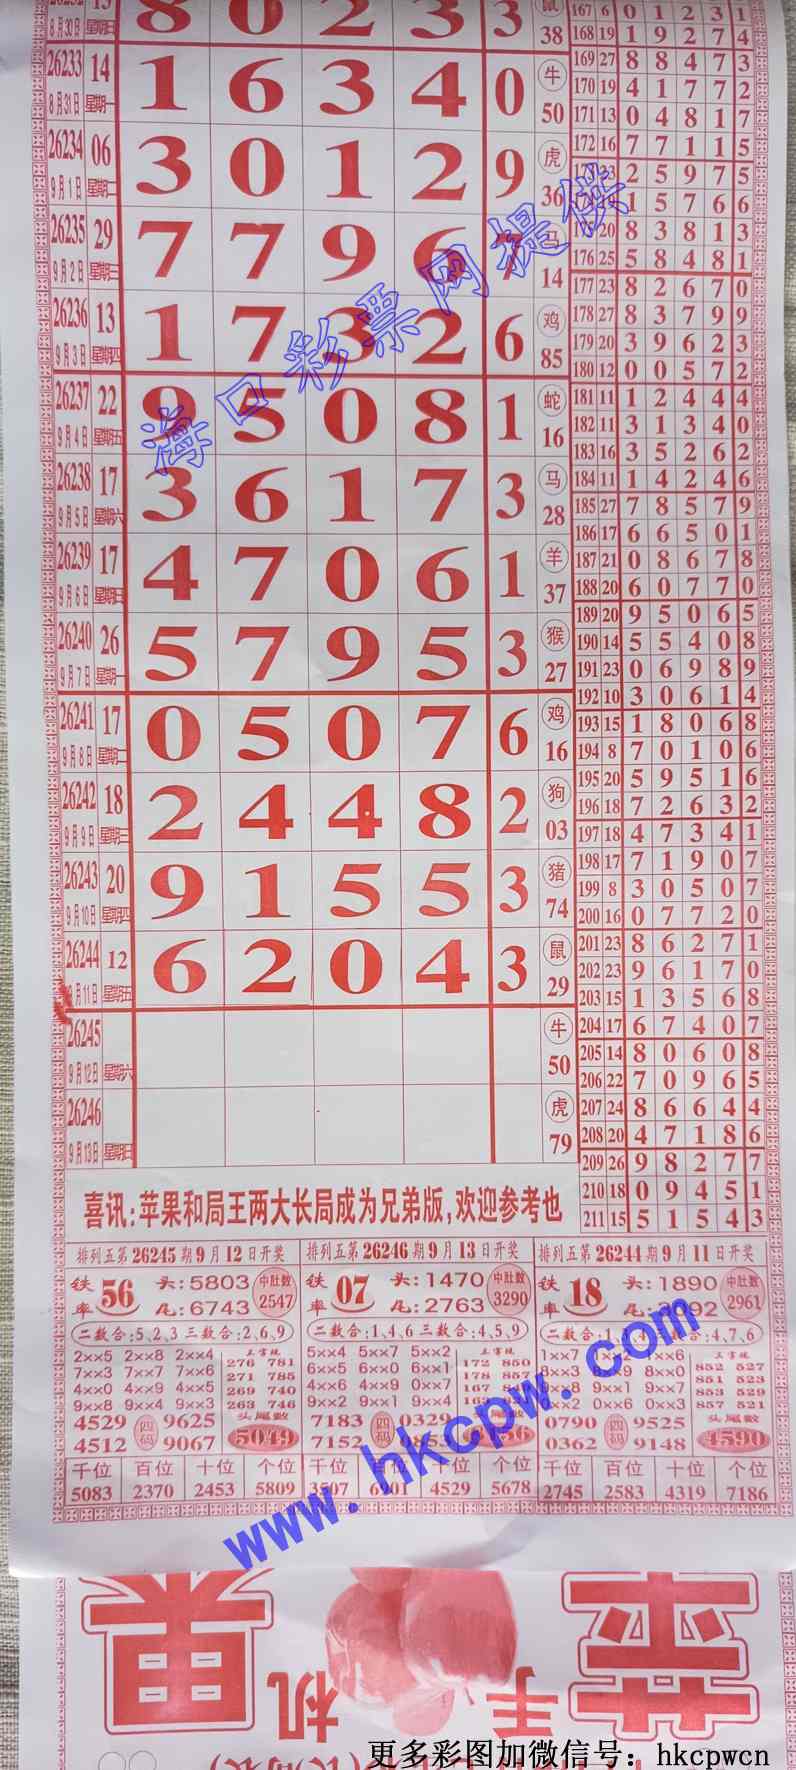 8 0 2 3 3 38
8月30日 星期日
26233 14 1 6 3 4 0 牛 50
8月31日 星期一
26234 06 3 0 1 2 9 虎 36
9月1日 星期二
26235 29 7 7 9 6 7 马 14
9月2日 星期三
26236 13 1 7 3 2 6 鸡 85
9月3日 星期四
26237 22 9 5 0 8 1 蛇 16
9月4日 星期五
26238 17 3 6 1 7 3 马 28
9月5日 星期六
26239 17 4 7 0 6 1 羊 37
9月6日 星期日
26240 26 5 7 9 5 3 猴 27
9月7日 星期一
26241 17 0 5 0 7 6 鸡 16
9月8日 星期二
26242 18 2 4 4 8 2 狗 03
9月9日 星期三
26243 20 9 1 5 5 3 猪 74
9月10日 星期四
26244 12 6 2 0 4 3 鼠 29
9月11日 星期五
26245 牛 50
9月12日 星期六
26246 虎 79
9月13日 星期日
167 6 0 1 2 3 1
168 19 1 9 2 7 4
169 27 8 8 4 7 3
170 19 4 1 7 7 2
171 13 0 4 8 1 7
172 16 7 7 1 1 5
2 5 9 7 5
1 5 7 6 6
20 8 3 8 1 3
176 25 5 8 4 8 1
177 23 8 2 6 7 0
178 27 8 3 7 9 9
179 20 3 9 6 2 3
180 12 0 0 5 7 2
181 11 1 2 4 4 4
182 11 3 1 3 4 0
183 16 3 5 2 6 2
184 11 1 4 2 4 6
185 27 7 8 5 7 9
186 17 6 6 5 0 1
187 21 0 8 6 7 8
188 20 6 0 7 7 0
189 20 9 5 0 6 5
190 14 5 5 4 0 8
191 23 0 6 9 8 9
192 10 3 0 6 1 4
193 15 1 8 0 6 8
194 8 7 0 1 0 6
195 20 5 9 5 1 6
196 18 7 2 6 3 2
197 18 4 7 3 4 1
198 17 7 1 9 0 7
199 8 3 0 5 0 7
200 16 0 7 7 2 0
201 23 8 6 2 7 1
202 23 9 6 1 7 0
203 15 1 3 5 6 8
204 17 6 7 4 0 7
205 14 8 0 6 0 8
206 22 7 0 9 6 5
207 24 8 6 6 4 4
208 20 4 7 1 8 6
209 26 9 8 2 7 7
210 18 0 9 4 5 1
211 15 5 1 5 4 3
海口彩票网提供
喜讯:苹果和局王两大长局成为兄弟版,欢迎参考也
排列五第26245期9月12日开奖
铁率 56 头:5803 尾:6743 中肚数 2547
二数合:5,2,3 三数合:2,6,9
2××5 2××8 2××4
7××3 7××7 7××6
4××0 4××9 4××5
9××8 9××4 9××3
276 781
271 785
269 740
263 746
4529 四码 9625 头尾数
4512 9067 5049
千位 百位 十位 个位
5083 2370 2453 5809
排列五第26246期9月13日开奖
铁率 07 头:1470 尾:2763 中肚数 3290
二数合:1,4,6 三数合:4,5,9
5××4 5××7 5××2
6××5 6××0 6××1
4××6 4××9 0××7
9××2 9××1 9××4
172 850
178 857
7183 四码 0329
7152
千位 百位 十位 个位
3507 6901 4529 5678
排列五第26244期9月11日开奖
铁率 18 头:1890 中肚数 2961
三数合:4,7,6
852 527
851 523
853 529
857 521
0790 四码 9525 头尾数
0362 9148 4590
千位 百位 十位 个位
2745 2583 4319 7186
www.hkcpw.com
苹果
手机
更多彩图加微信号: hkcpwcn